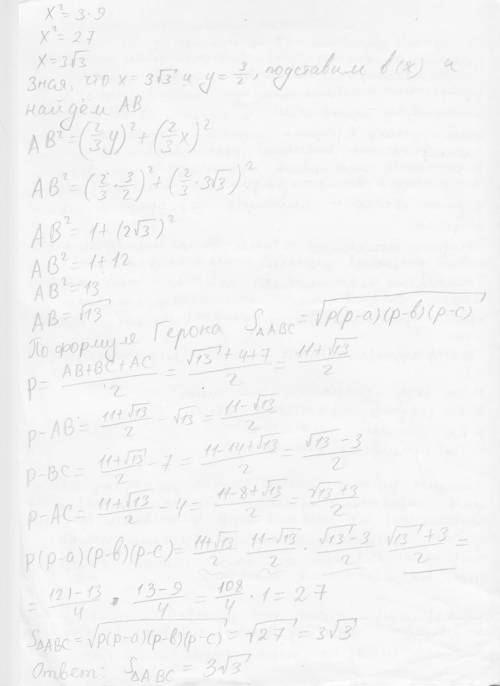 x² = 3·9
x² = 27
x = 3√3
Зная, что x = 3√3 и y = 3/2, подставим в (x) и
найдём AB
AB² = (2/3 y)² + (2/3 x)²
AB² = (2/3 · 3/2)² + (2/3 · 3√3)²
AB² = 1 + (2√3)²
AB² = 1 + 12
AB² = 13
AB = √13
По формуле Герона S△ABC = √(p(p-a)(p-в)(p-c))
P = (AB+BC+AC)/2 = (√13+4+7)/2 = (11+√13)/2
p-AB = (11+√13)/2 - √13 = (11-√13)/2
p-BC = (11+√13)/2 - 7 = (11-14+√13)/2 = (√13-3)/2
p-AC = (11+√13)/2 - 4 = (11-8+√13)/2 = (√13+3)/2
p(p-a)(p-в)(p-c) = (11+√13)/2 · (11-√13)/2 · (√13-3)/2 · (√13+3)/2 =
= (121-13)/4 · (13-9)/4 = 108/4 · 1 = 27
S△ABC = √(p(p-a)(p-в)(p-c)) = √27 = 3√3
Ответ: S△ABC = 3√3